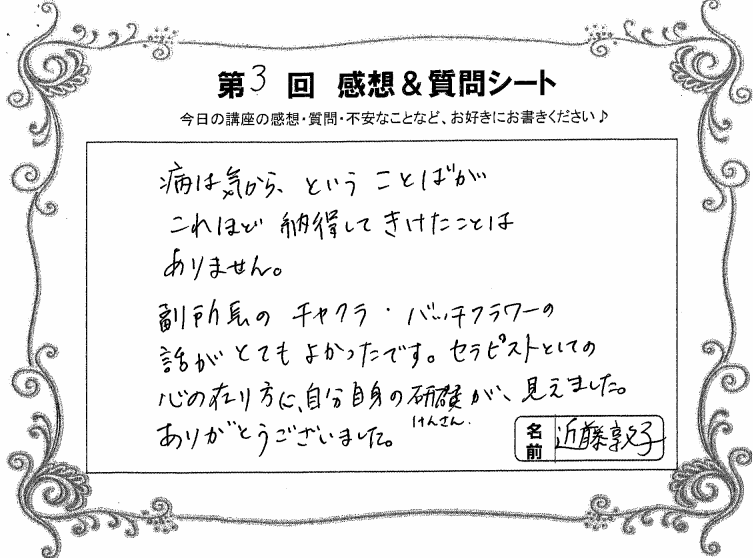 第3回 感想＆質問シート
今日の講座の感想・質問・不安なことなど、お好きにお書きください♪
病は気から、ということばが
これほど 納得してきけたことは
ありません。
副所長の チャクラ・バッチフラワーの
話がとてもよかったです。セラピストとしての
心の在り方に、自分自身の研礎が、見えました。
けんさん.
ありがとうございました。
名前 近藤敦子